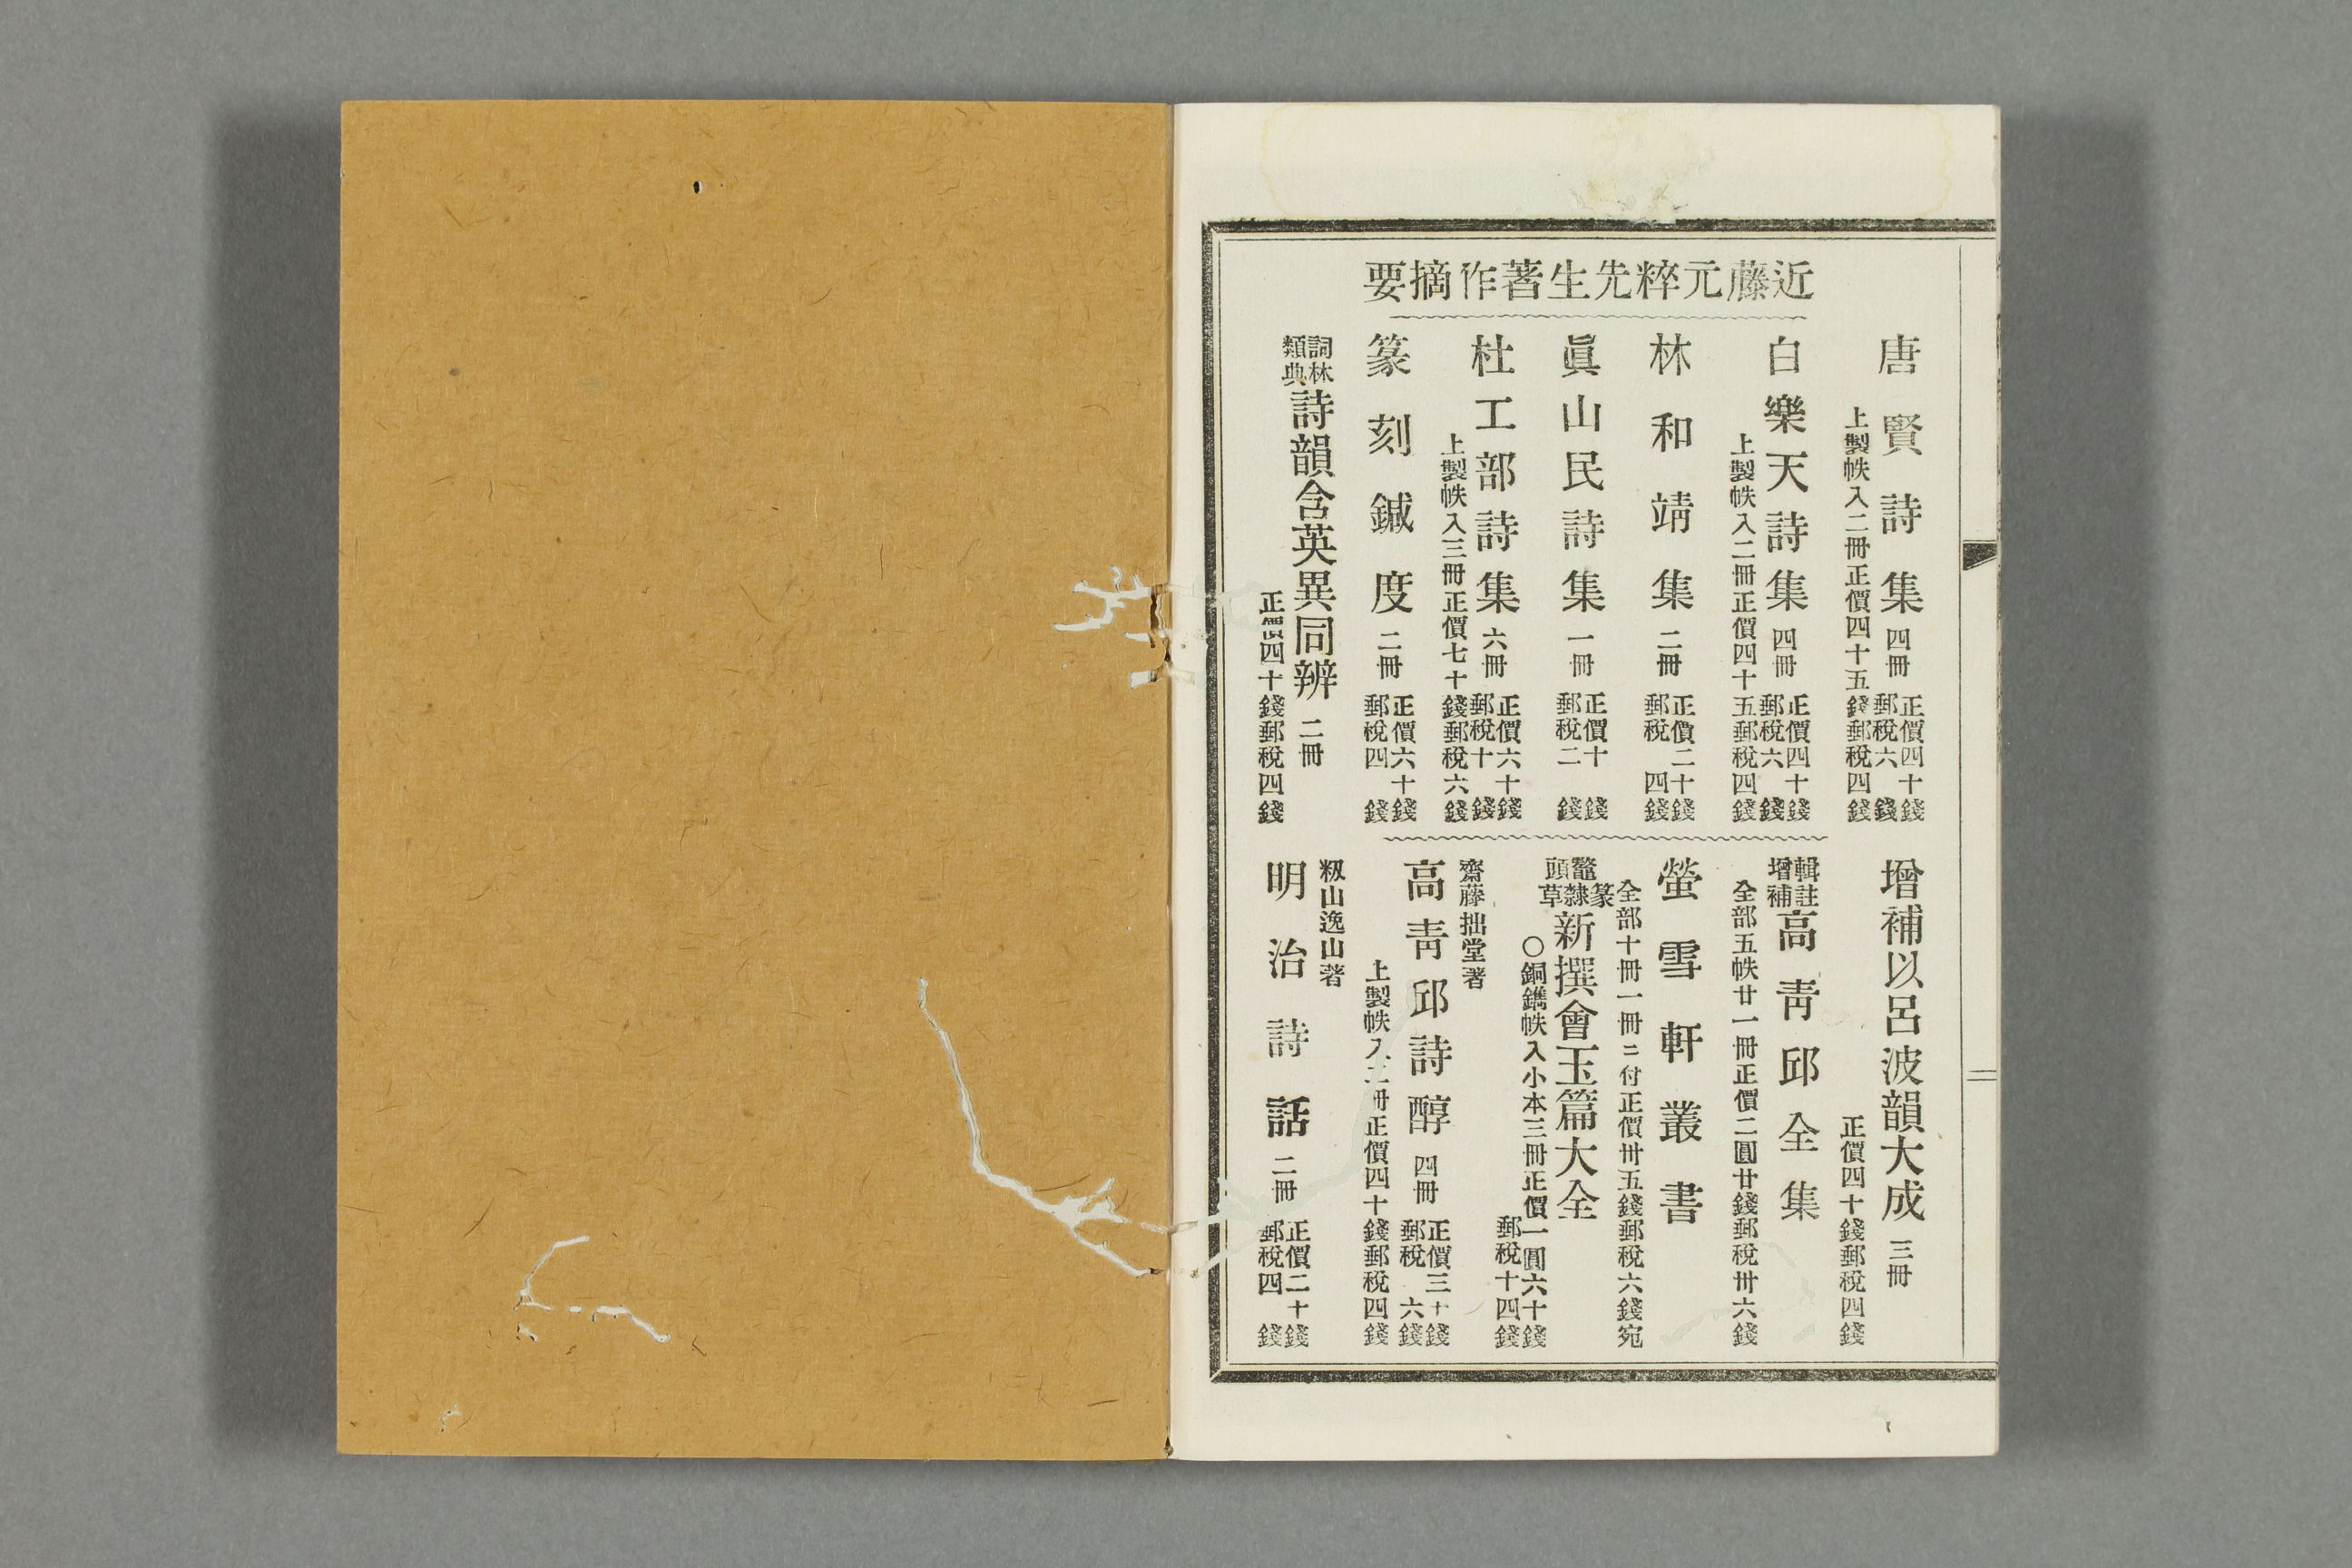 近藤元粹先生著作摘要
唐賢詩集 四冊 正價四十錢 郵稅六錢
上製帙入二冊正價四十五錢郵稅四錢
白樂天詩集 四冊 正價四十錢 郵稅六錢
上製帙入二冊正價四十五郵稅四錢
林和靖集 二冊 正價二十錢 郵稅四錢
眞山民詩集 一冊 正價十錢 郵稅二錢
杜工部詩集 六冊 正價六十錢 郵稅十錢
上製帙入三冊正價七十錢郵稅六錢
篆刻鍼度 二冊 正價六十錢 郵稅四錢
詞林類典 詩韻含英異同辨 二冊
正價四十錢郵稅四錢
增補以呂波韻大成 三冊
正價四十錢郵稅四錢
輯註增補 高靑邱全集
全部五帙廿一冊正價二圓廿錢郵稅卅六錢
螢雪軒叢書
全部十冊一冊ニ付正價卅五錢郵稅六錢宛
鼇頭 篆隸草 新撰會玉篇大全
〇銅鐫帙入小本三冊正價一圓六十錢 郵稅十四錢
齋藤拙堂著
高靑邱詩醇 四冊 正價三十錢 郵稅六錢
上製帙入二冊正價四十錢郵稅四錢
籾山逸山著
明治詩話 二冊 正價二十錢 郵稅四錢